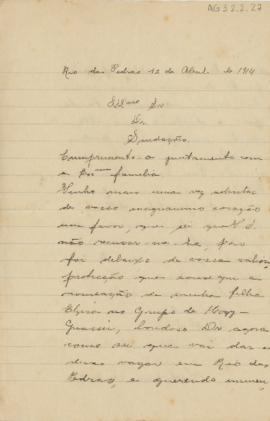 AG 3.2.2.27
Rio das Pedras 12 de Abril de 1914
Illmo Snr
Dr
Saudação.
Cumprimento-o juntamente com
a Exma familia
Venho mais uma vez solicitar
de vosso magnanimo coração
um favor, que sei que V. S.
não recusar me ha, pois
foi debaixo de vossa valiosa
protecção que consegui a
nomeação de minha filha
no Grupo de Mogy-
Guassú, bondoso Dr agora
como sei que vai dar
vagas em Rio das
Pedras, e querendo